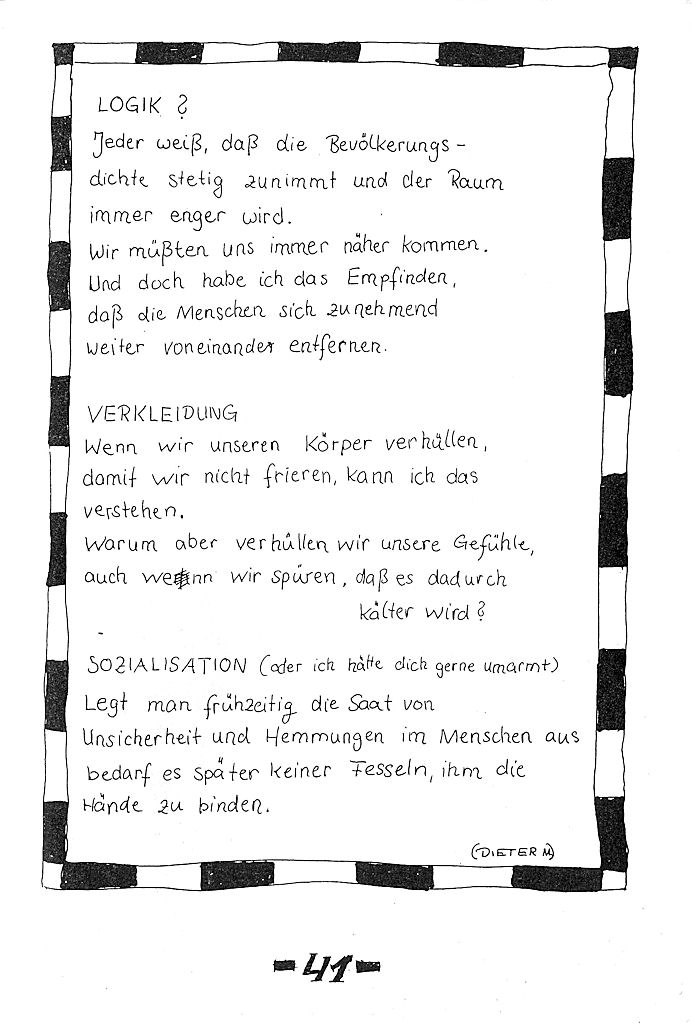 LOGIK ?
Jeder weiß, daß die Bevölkerungs-
dichte stetig zunimmt und der Raum
immer enger wird.
Wir müßten uns immer näher kommen.
Und doch habe ich das Empfinden,
daß die Menschen sich zunehmend
weiter voneinander entfernen.
VERKLEIDUNG
Wenn wir unseren Körper verhüllen,
damit wir nicht frieren, kann ich das
verstehen.
Warum aber verhüllen wir unsere Gefühle,
auch wenn wir spüren, daß es dadurch
kälter wird?
SOZIALISATION (oder ich hätte dich gerne umarmt)
Legt man frühzeitig die Saat von
Unsicherheit und Hemmungen im Menschen aus
bedarf es später keiner Fesseln, ihm die
Hände zu binden.
(DIETER M)
-41-